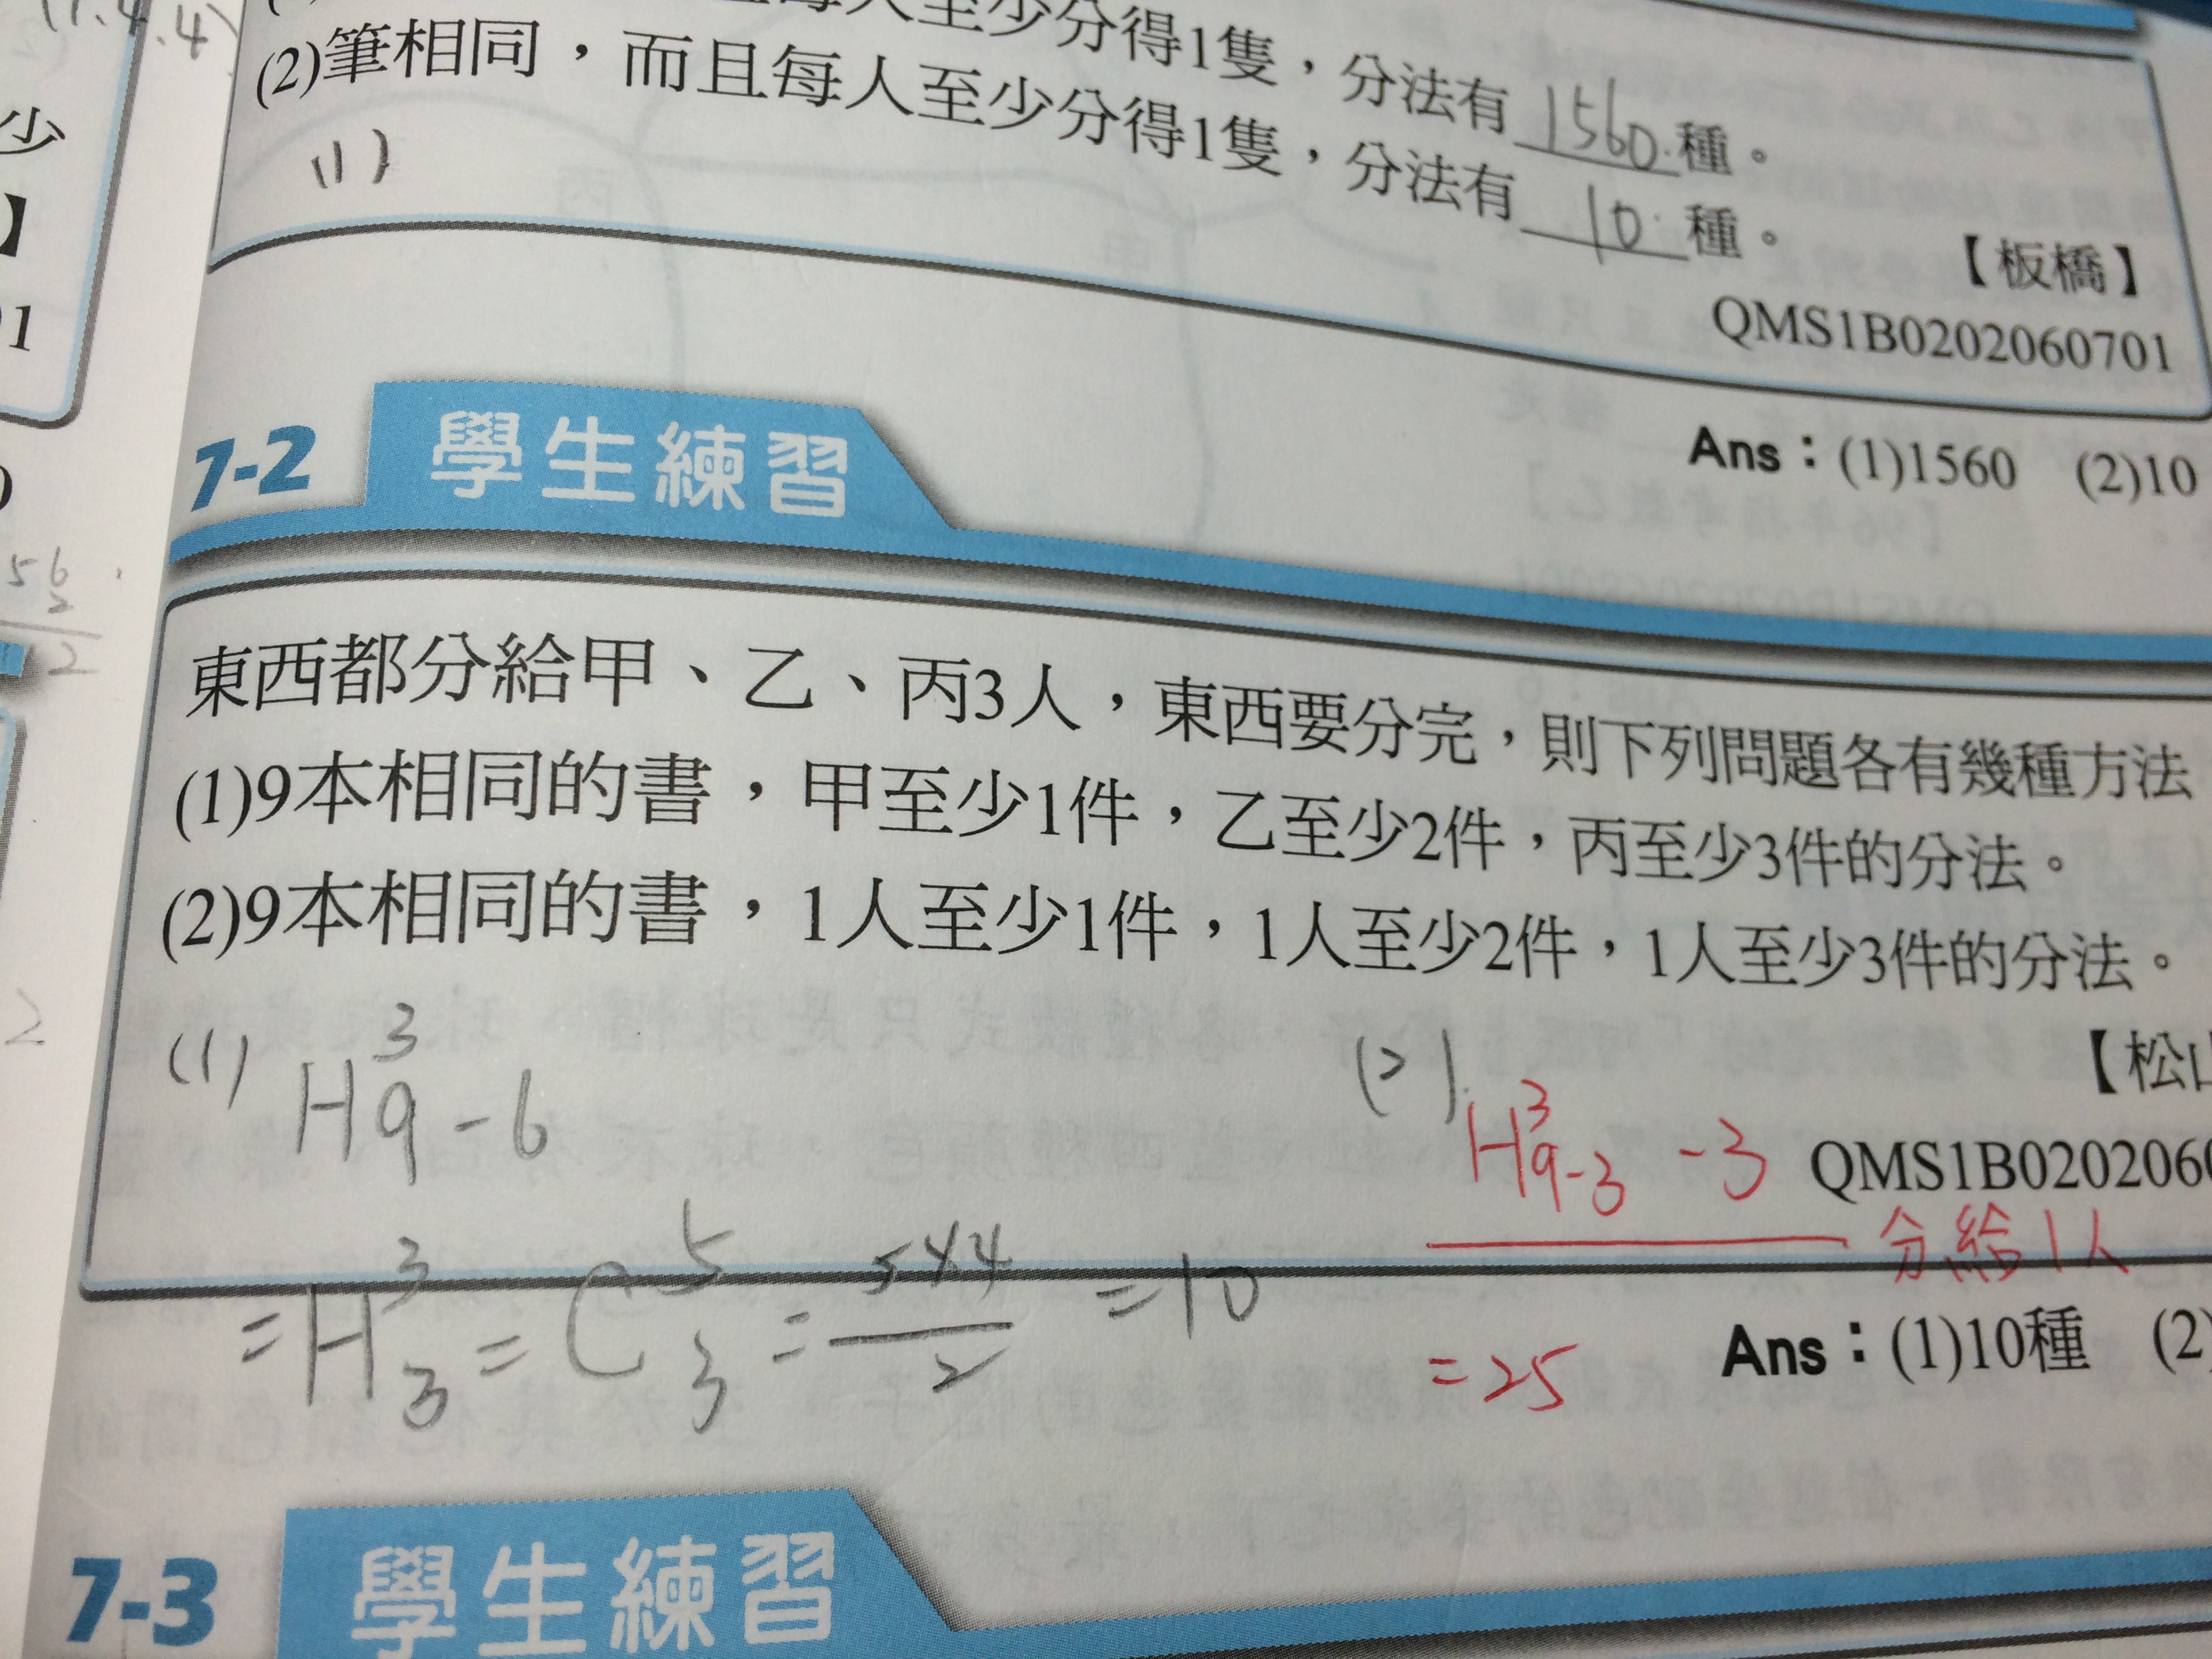 (1.4.4)
至少分得1隻，分法有1560種。
(2)筆相同，而且每人至少分得1隻，分法有10種。
(1)
【板橋】
QMS1B0202060701
Ans：(1)1560 (2)10
少
】
01
7-2 學生練習
56
2
2
東西都分給甲、乙、丙3人，東西要分完，則下列問題各有幾種方法
(1)9本相同的書，甲至少1件，乙至少2件，丙至少3件的分法。
(2)9本相同的書，1人至少1件，1人至少2件，1人至少3件的分法。
2
【松山
QMS1B0202060
(1) H³9-6
=H³3=C⁵3=5×4/2=10
(2) H³9-3 -3
分給1人
=25
Ans：(1)10種 (2)
7-3 學生練習